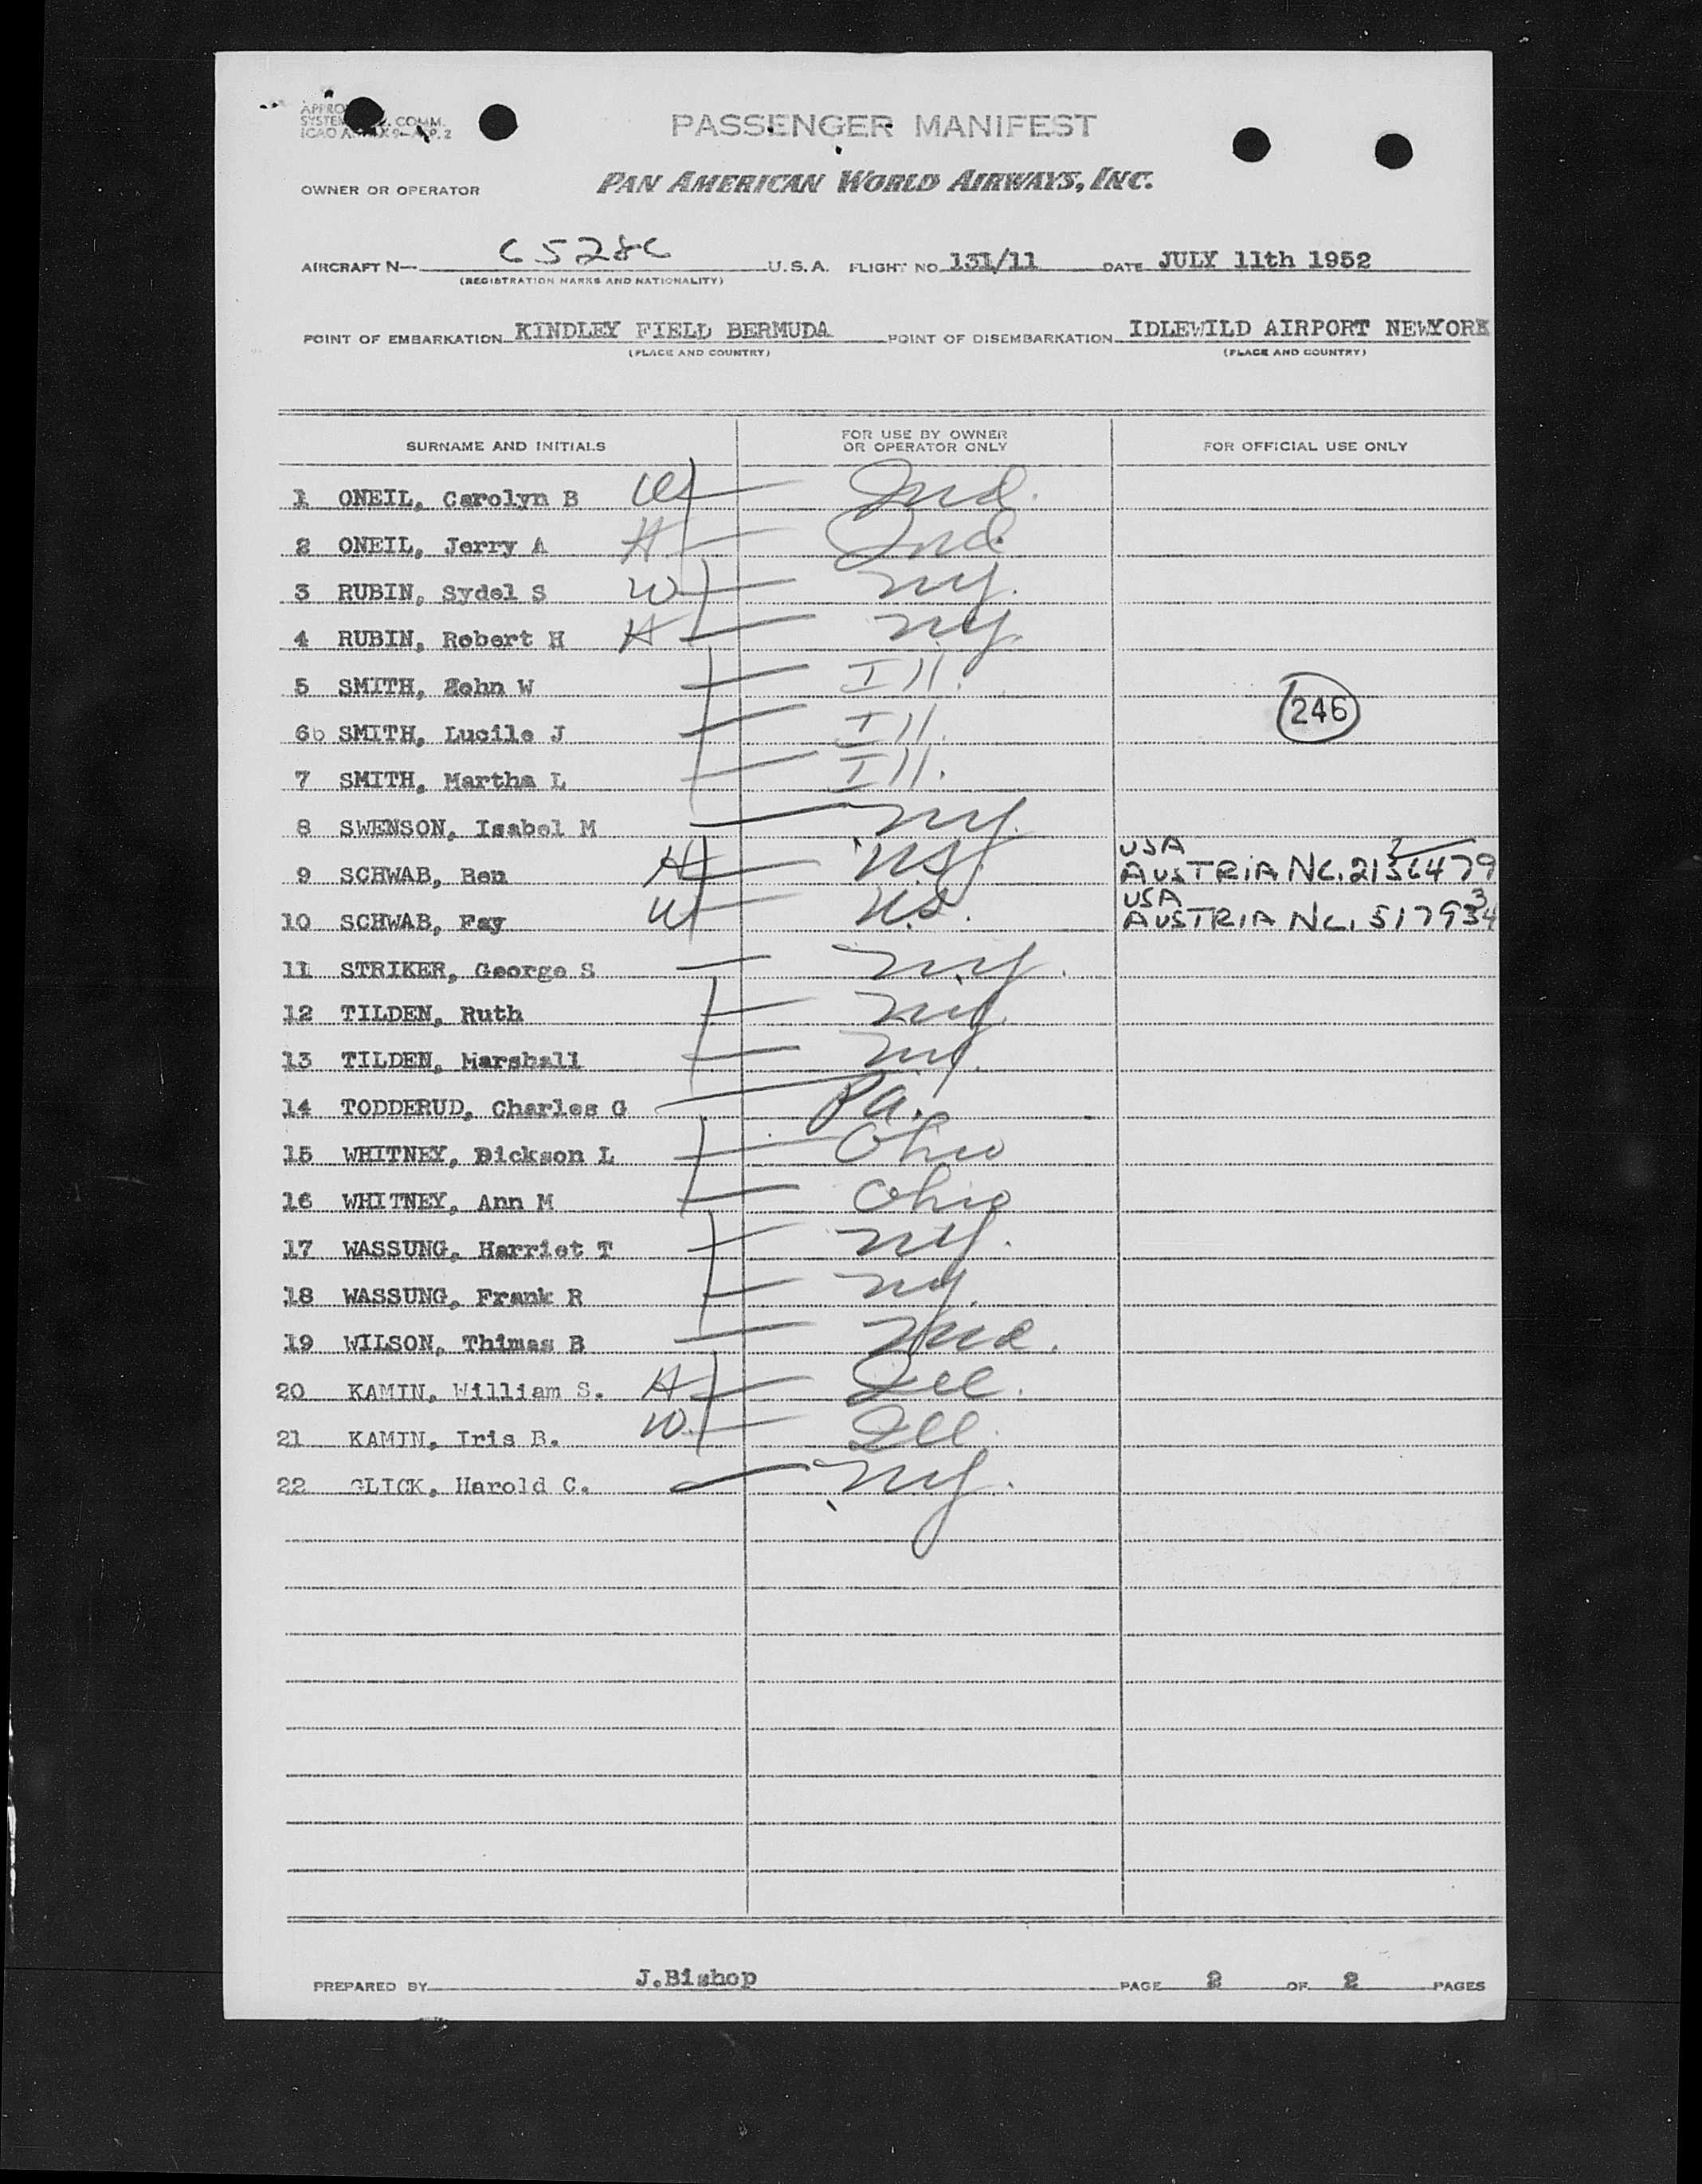 PASSENGER MANIFEST
OWNER OR OPERATOR PAN AMERICAN WORLD AIRWAYS, INC.
AIRCRAFT N— C528C U.S.A. FLIGHT NO 131/11 DATE JULY 11th 1952
(REGISTRATION MARKS AND NATIONALITY)
POINT OF EMBARKATION KINDLEY FIELD BERMUDA POINT OF DISEMBARKATION IDLEWILD AIRPORT NEWYORK
(PLACE AND COUNTRY) (PLACE AND COUNTRY)
SURNAME AND INITIALS FOR USE BY OWNER OR OPERATOR ONLY FOR OFFICIAL USE ONLY
1 ONEIL, Carolyn B W Ind.
2 ONEIL, Jerry A H Ind.
3 RUBIN, Sydel S W NY.
4 RUBIN, Robert H H NY.
5 SMITH, John W Ill.
246
6 SMITH, Lucile J Ill.
7 SMITH, Martha L Ill.
8 SWENSON, Isabel M NY.
USA
9 SCHWAB, Ben H AUSTRIA NC.
USA
10 SCHWAB, Fay W AUSTRIA NC.
11 STRIKER, George S NY.
12 TILDEN, Ruth NY.
13 TILDEN, Marshall NY.
14 TODDERUD, Charles G Pa.
15 WHITNEY, Dickson L Ohio
16 WHITNEY, Ann M Ohio
17 WASSUNG, Harriet T NY.
18 WASSUNG, Frank R NY.
19 WILSON, Thimas B
20 KAMIN, William S. H Ill.
21 KAMIN, Iris B. W Ill.
22 GLICK, Harold C. NY.
PREPARED BY J.Bishop PAGE 2 OF 2 PAGES